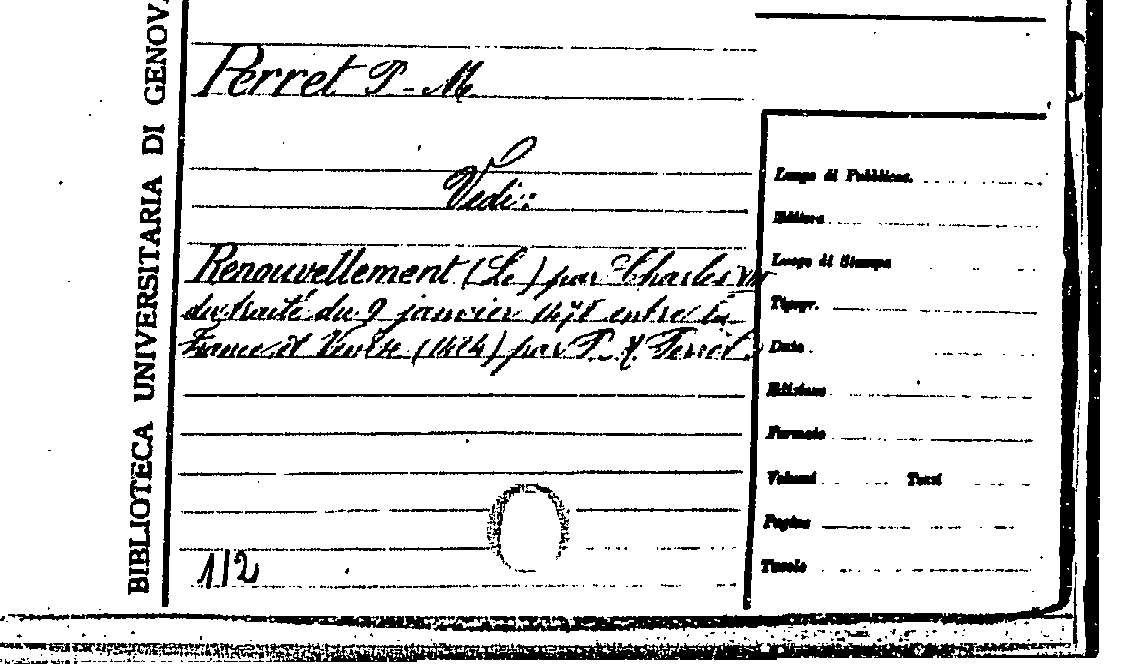 BIBLIOTECA UNIVERSITARIA DI GENOVA
Perret P.-M.
Vedi:
Renouvellement (Le) par Charles VIII
du traité du 9 janvier 1478 entre la
France et Venise (1484) par P. M. Perret.
1/2
Luogo di Pubblicaz.
Editore
Luogo di Stampa
Tipogr.
Data
Edizione
Formato
Volumi Tomi
Pagine
Tavole